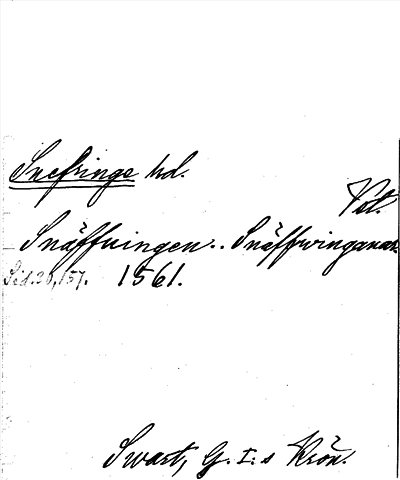 Snefringe hd.
Vstm.
Snäffuingen.. Snäffwinganar
Sid. 26, 157. 1561.
Swart, G. I:s Krön.